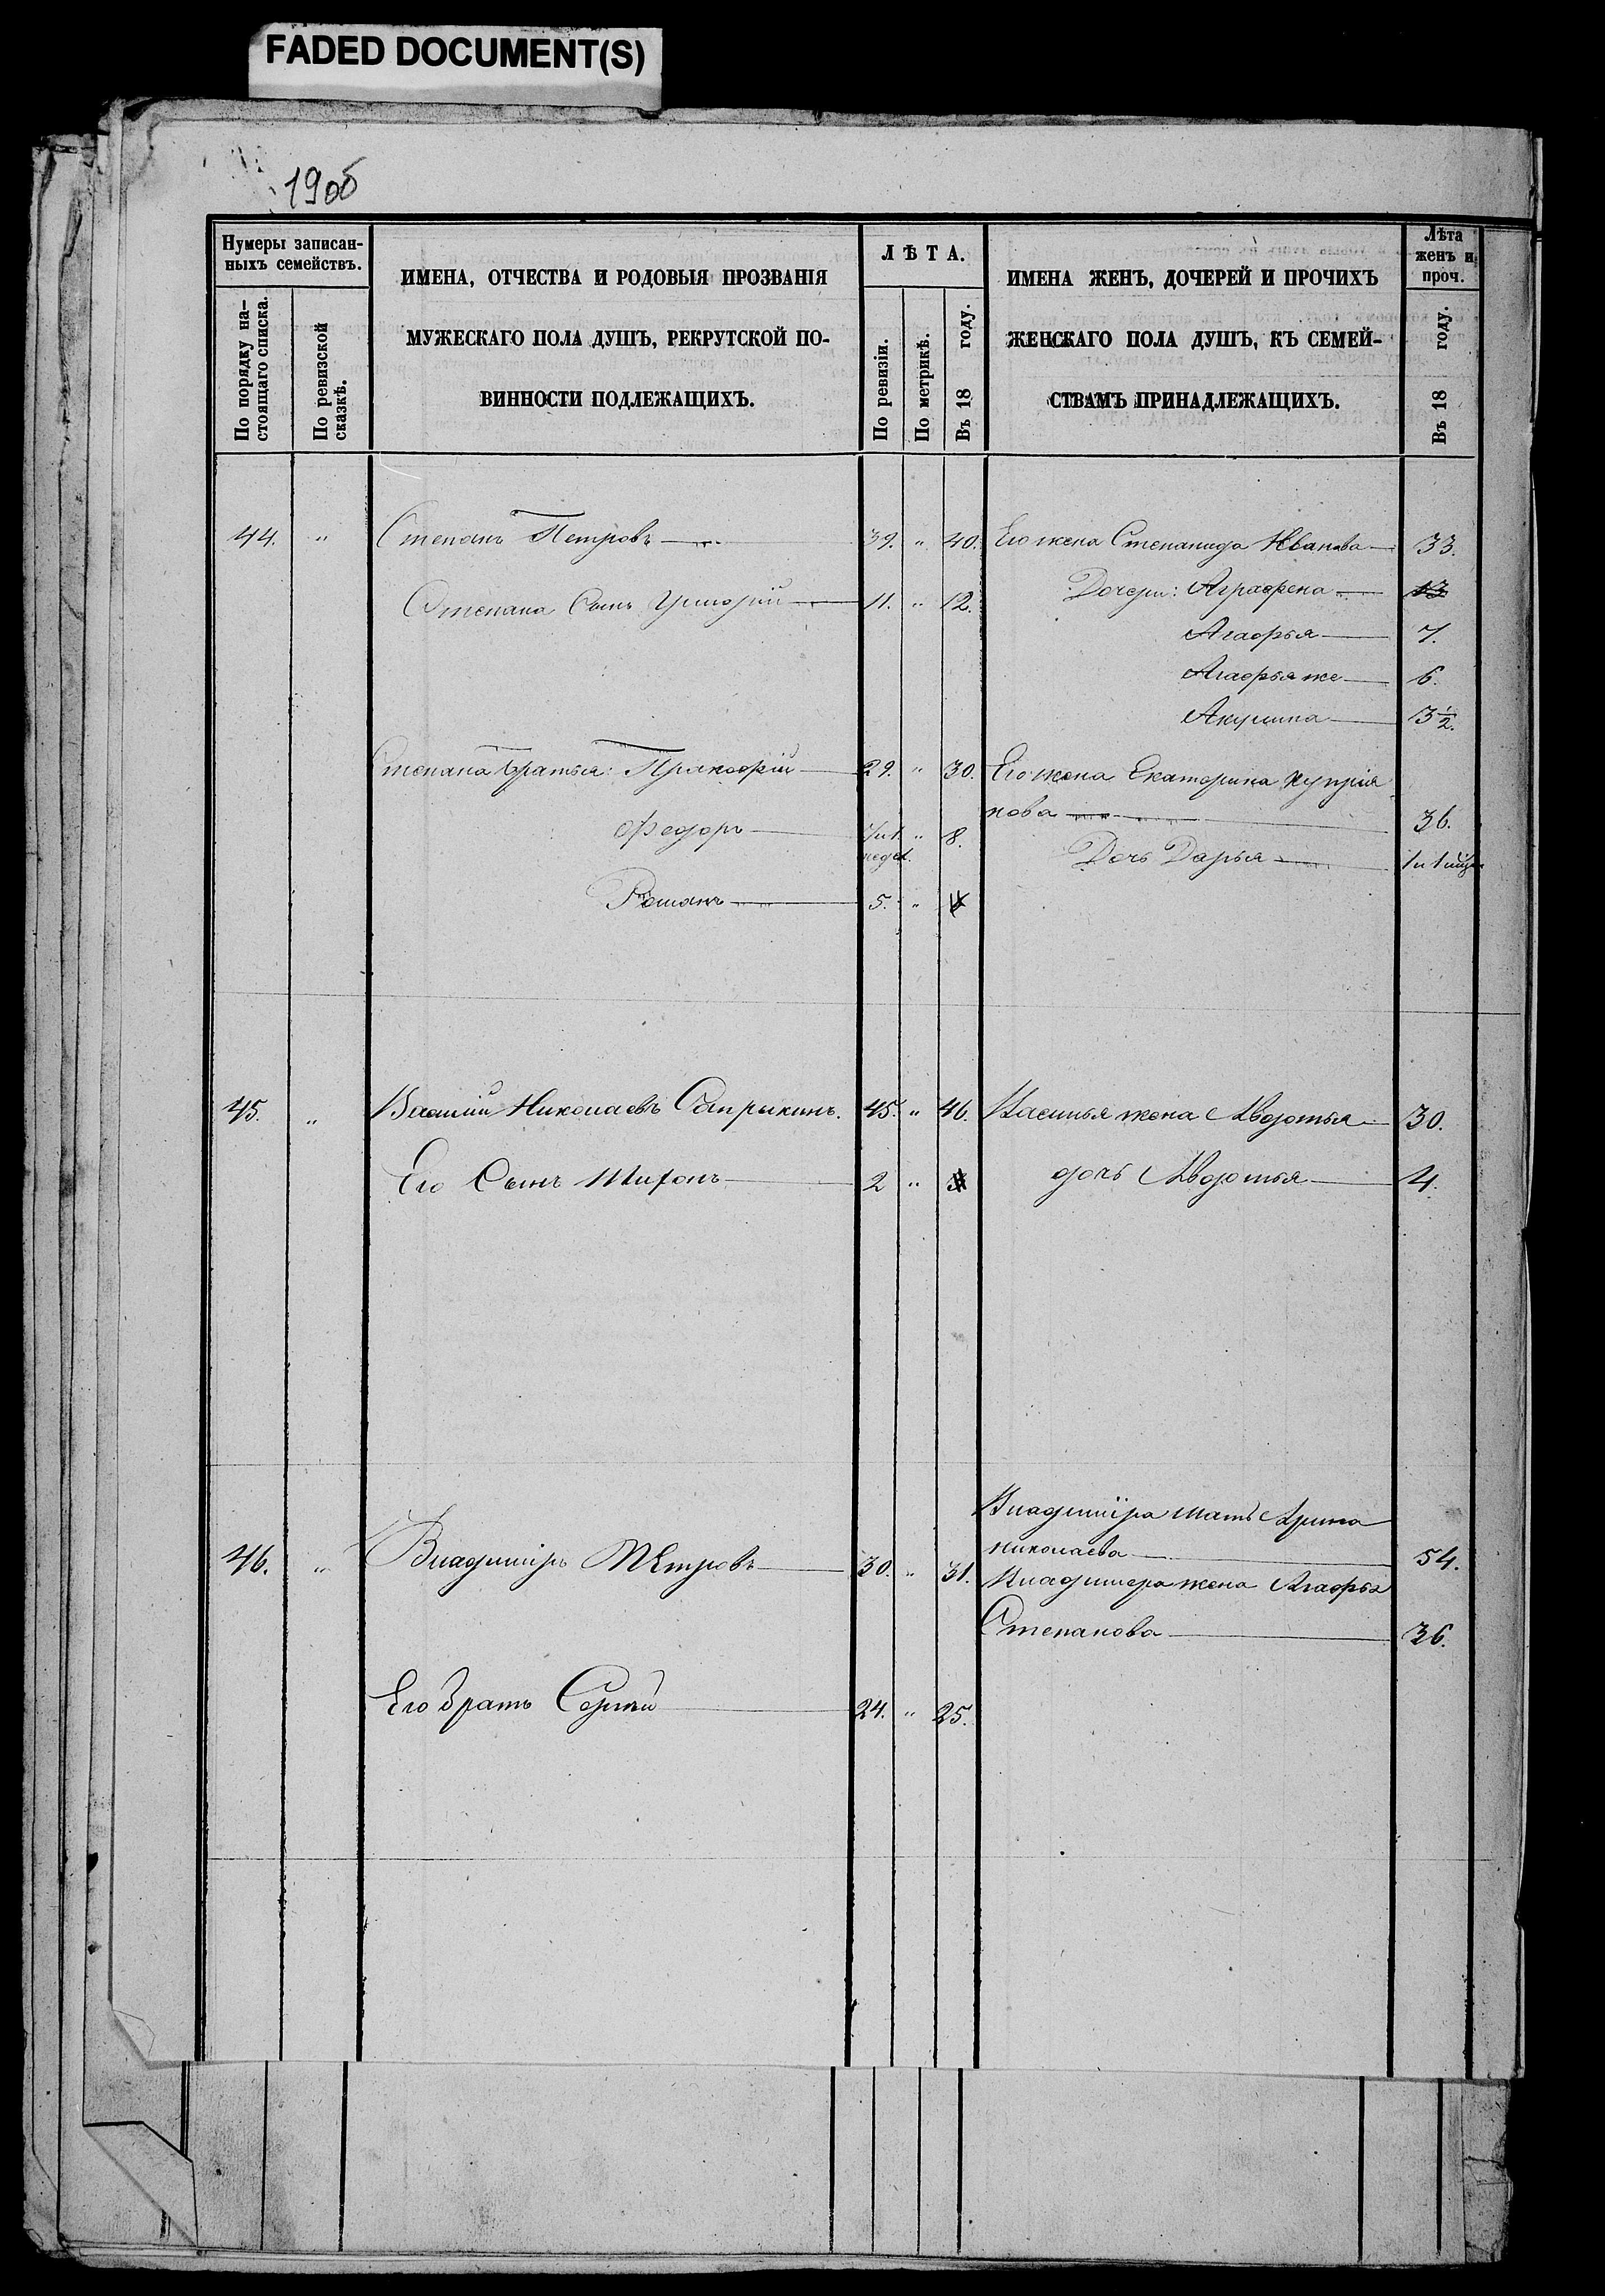 FADED DOCUMENT(S)
190об
Нумеры записан-
ныхъ семействъ.
По порядку на-
стоящаго списка.
По ревизской
сказкѣ.
ИМЕНА, ОТЧЕСТВА И РОДОВЫЯ ПРОЗВАНІЯ
МУЖЕСКАГО ПОЛА ДУШЪ, РЕКРУТСКОЙ ПО-
ВИННОСТИ ПОДЛЕЖАЩИХЪ.
ЛѢТА.
По ревизіи.
По метрикѣ.
Въ 18 году.
ИМЕНА ЖЕНЪ, ДОЧЕРЕЙ И ПРОЧИХЪ
ЖЕНСКАГО ПОЛА ДУШЪ, КЪ СЕМЕЙ-
СТВАМЪ ПРИНАДЛЕЖАЩИХЪ.
Лѣта
женъ и
проч.
Въ 18 году.
44. " Степанъ Петровъ 39. " 40. Его жена Степанида Иванова 33.
Степана Сынъ Григорій 11. " 12. Дочери: Аграфена 13
Агафья 7.
Агафья же 6.
Акулина 3½.
Степана братья: Пракофій 29. " 30. Его жена Екатерина Купрія
нова 36.
Федоръ " 8.
недел.
Дочь Дарья
Романъ 5. "
45. " Василій Николаевъ Сапрыкинъ. 45. " 46. Василья жена Авдотья 30.
Его Сынъ Тихонъ 2 " дочь Авдотья 4.
Владиміра мать Арина
46. " Владиміръ Петровъ 30. " 31. Николаева 54.
Владимера жена Агафья
Степанова 36.
Его братъ Сергѣй 24. " 25.